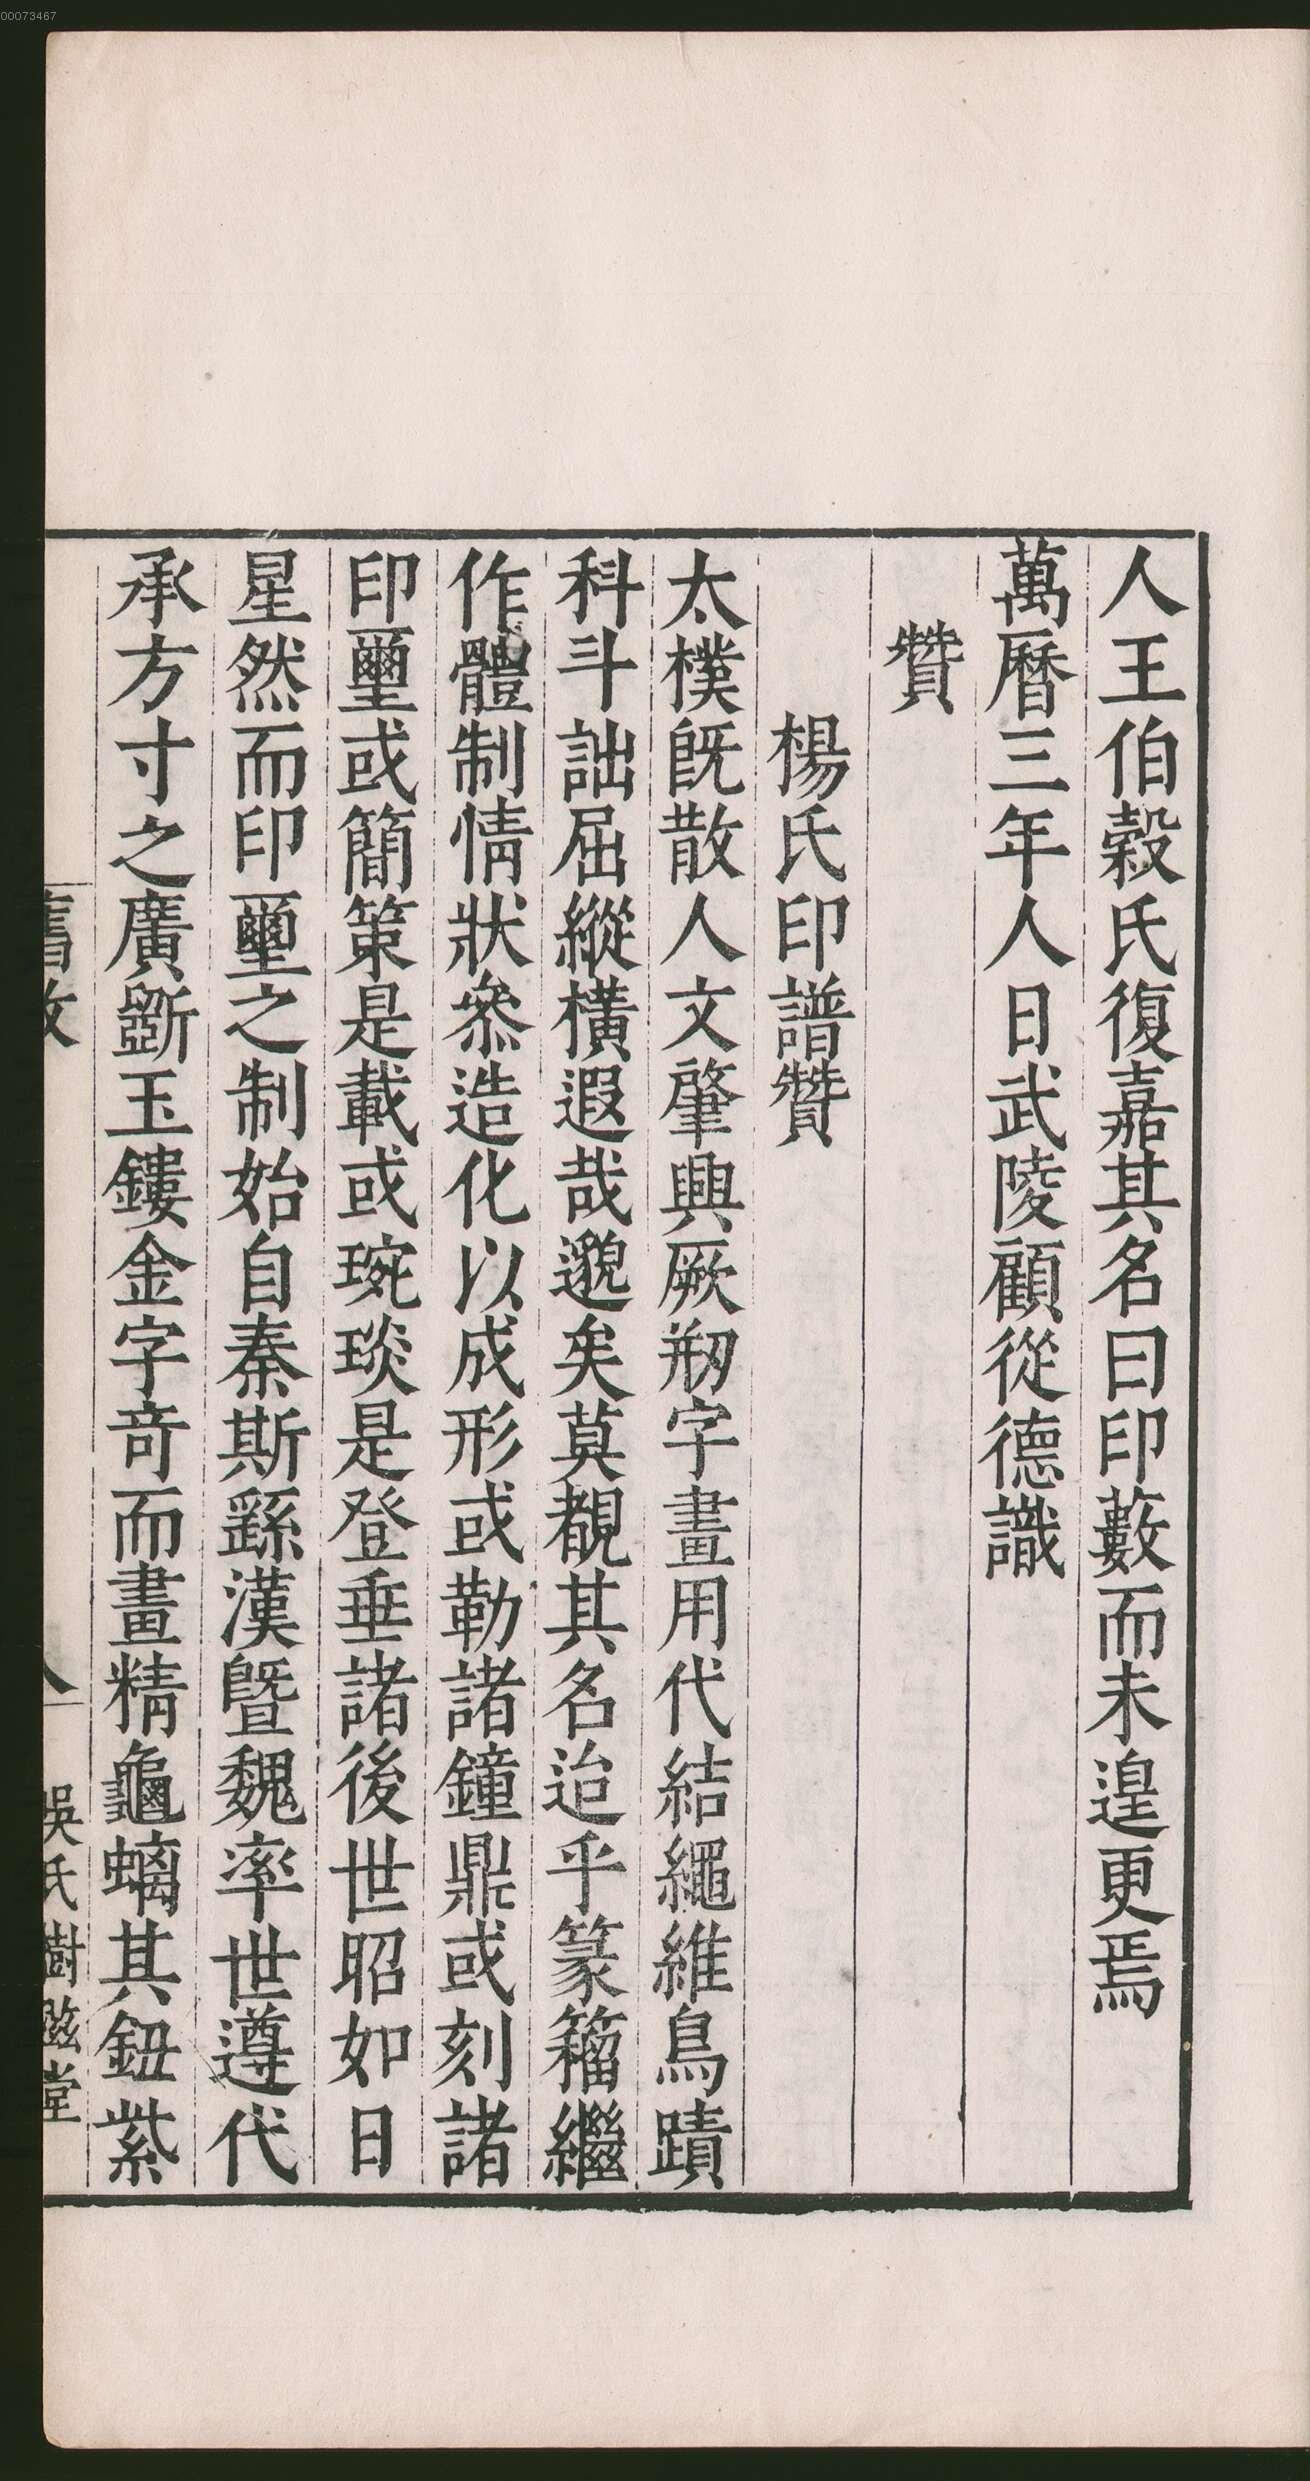 00073467
人王伯榖氏復嘉其名曰印藪而未遑更焉
萬曆三年人日武陵顧從德識
贊
楊氏印譜贊
太樸旣散人文肇興厥剏字畫用代結繩維鳥蹟
科斗詘屈縱橫遐哉邈矣莫覩其名迨乎篆籀繼
作體制情狀叅造化以成形或勒諸鐘鼎或刻諸
印璽或簡策是載或琬琰是登垂諸後世昭如日
星然而印璽之制始自秦斯繇漢曁魏率世遵代
承方寸之廣斵玉鏤金字竒而畫精龜螭其鈕紫
舊敘
八
吳氏樹滋堂